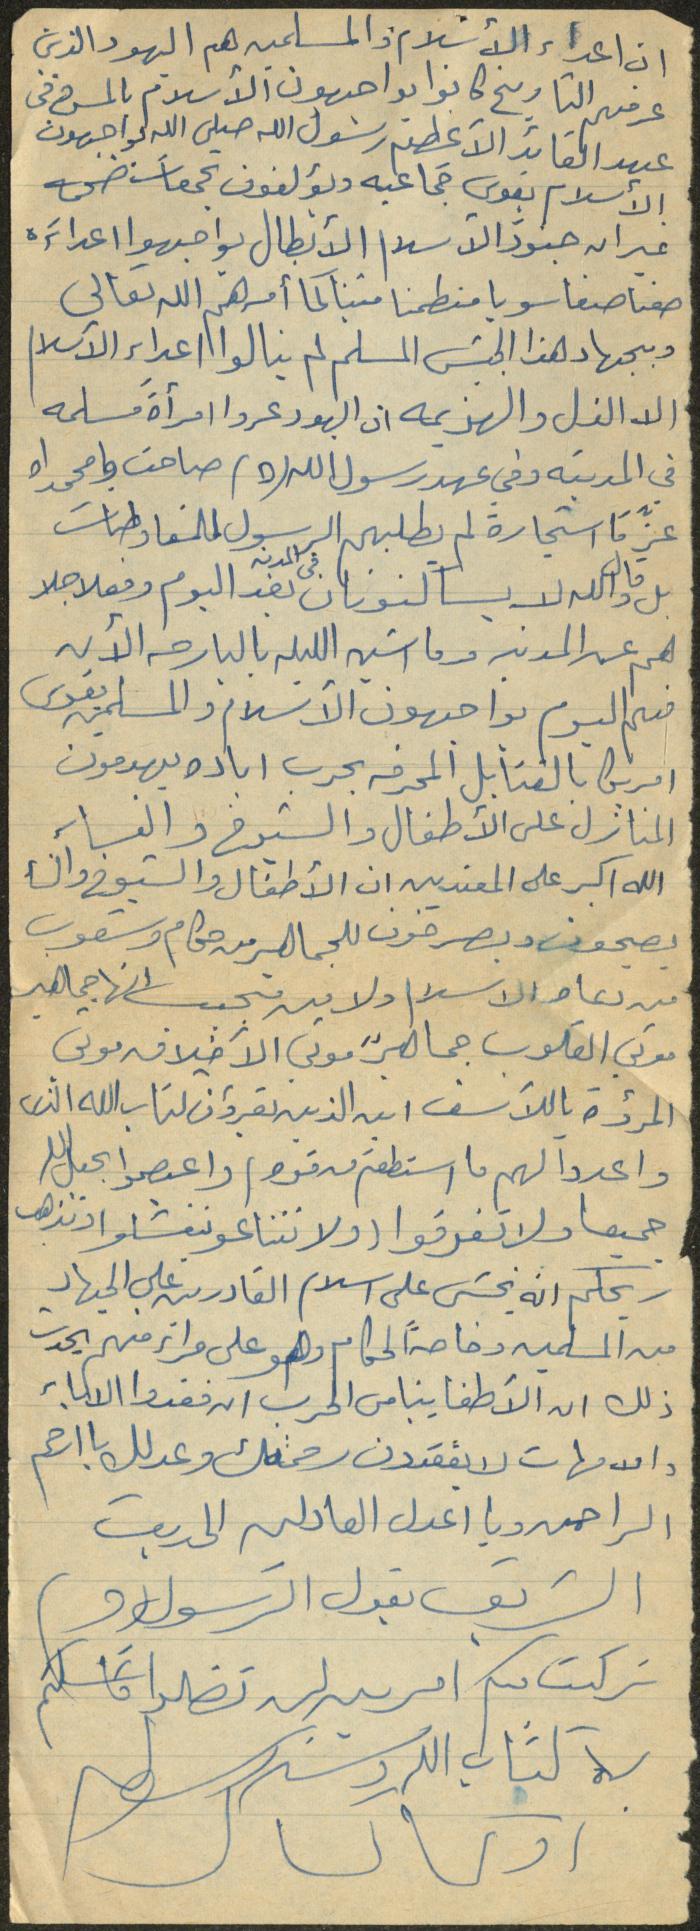 ان اعداء الأسلام والمسلمين هم اليهود الذين
عرفهم التاريخ كانوا يواجهون الأسلام بالمسرح في
عهد القائد الأعظم رسول الله صلى الله يواجهون
الأسلام بقوى جماعيه ويؤلفون تجمعات ضخمه
غير ان جنود الأسلام الأبطال يواجهوا اعداءه
صفنا صفا سويا منظمنا متينا كما أمرهم الله تعالى
وبجهاد هذا الجيش المسلم لم ينالوا اعداء الأسلام
الا الذل والهزيمه ان اليهود عروا امرأة مسلمه
في المدينه وفي عهد رسول الله (ص) صاحت وامحمداه
استجارة لم يطلبهم الرسول للمفاوضات
بل قال والله لا يساكنونان في المدينه بعد اليوم وفعلا جلا
هم عن المدينه وما اشبه الليله بالبارحه الأن
فهم اليوم يواجهون الأسلام والمسلمين بقوى
امريكا بالقنابل المحرقه بحرب اباده يهدمون
المنازل على الأطفال والشيوخ والنساء
الله اكبر على المعتدين ان الأطفال والشيوخ والنساء
يصيحون ويصرخون للجماهير من حكام وشعوب
من دعاه الاسلام ولا من مجيب انها جماهير
موتى القلوب جماهير موتى الأخلاق موتى
المرؤة ياللأسف اين الذين يقرؤن كتاب الله الذي
واعدوا لهم ما استطعتم من قوه واعتصموا بحبل الله
جميعا ولا تفرقوا ولا تنازعوا فتفشلوا وتذهب
ريحكم انه يخشى على اسلام القادرين على الجهاد
من المسلمين وخاصةً الحكام وهو على مراء منهم يحدث
ذلك ان الأطفا يتامى الحرب ان فقدوا الأباء
والامهات لا يفقدون رحمتك وعدلك يا ارحم
الراحمين ويا اعدل العادلين الحديث
الشريف يقول الرسول (ص)
تركت فيكم امرين لن تضلوا ما تمسكتم
بها كتاب الله وسنة